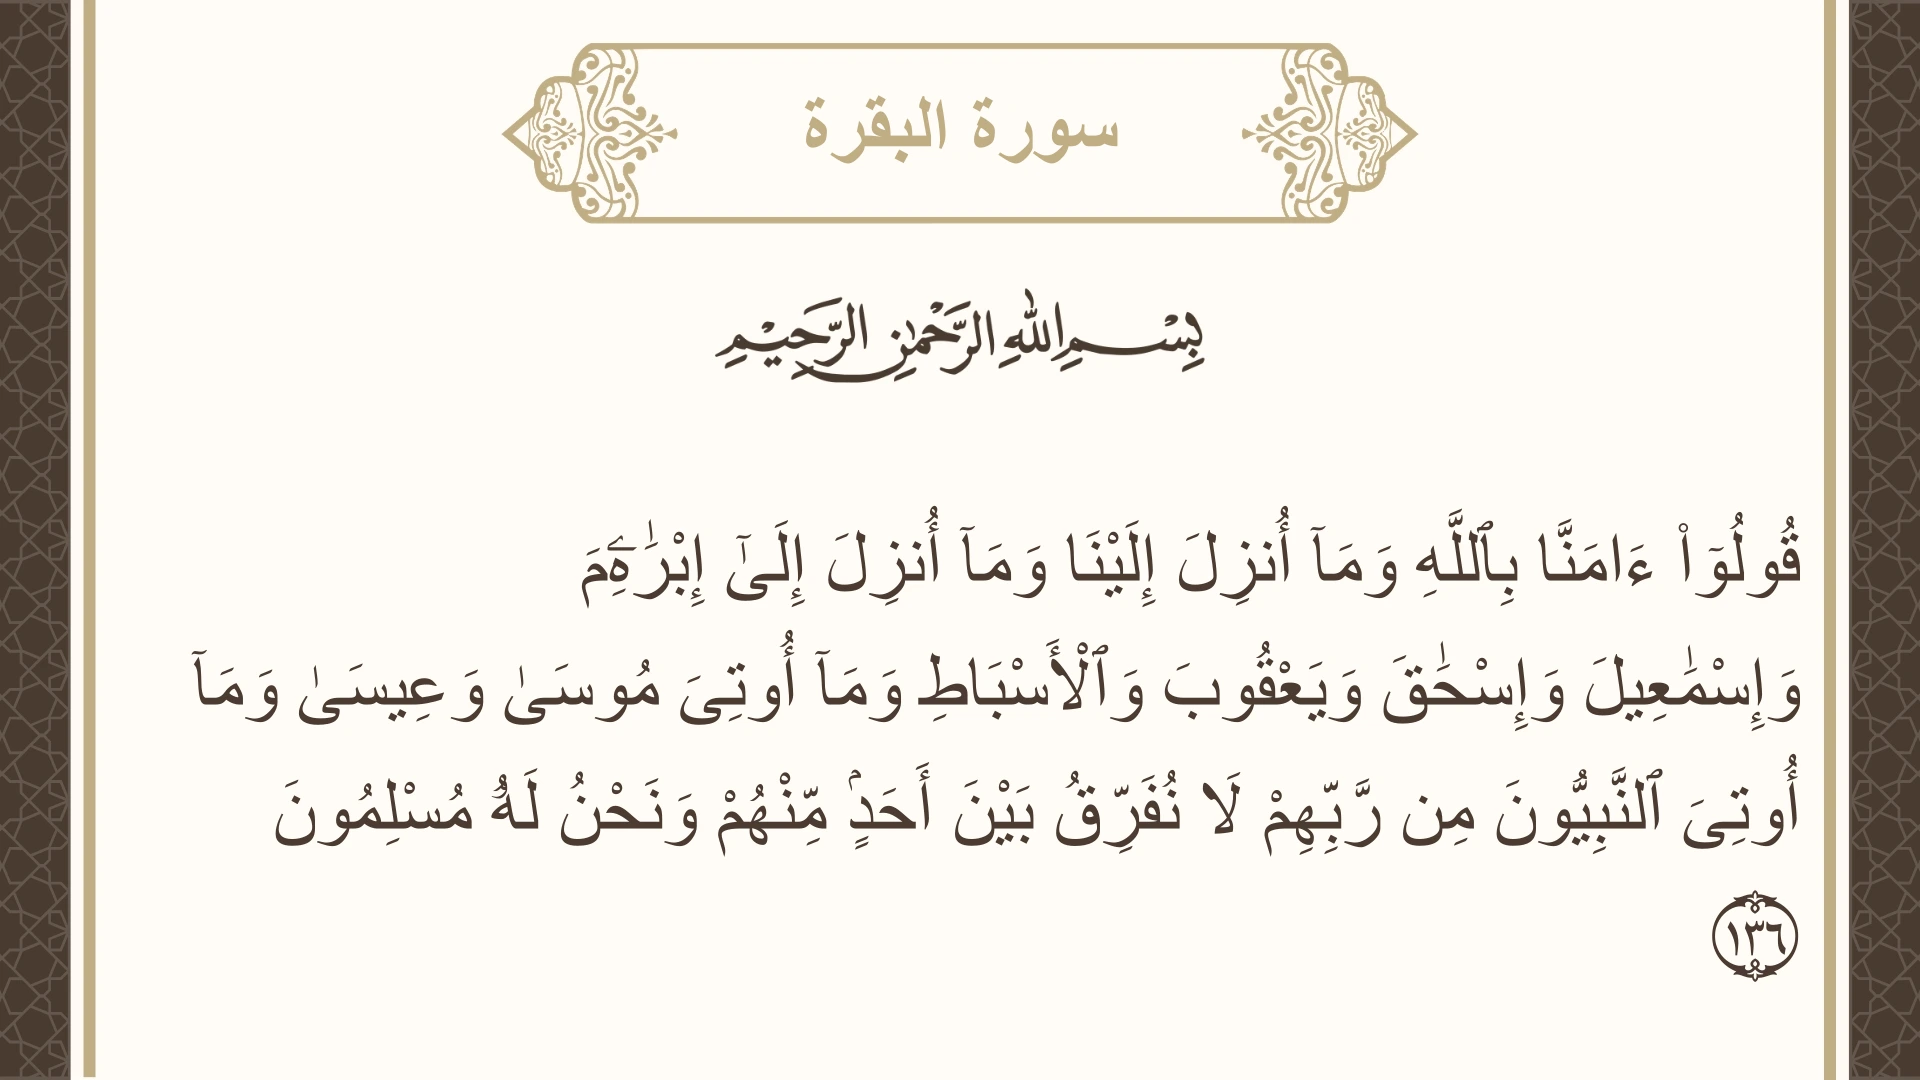 سورة البقرة
بِسْمِ اللهِ الرَّحْمٰنِ الرَّحِيْمِ
قُولُوٓا۟ ءَامَنَّا بِٱللَّهِ وَمَآ أُنزِلَ إِلَيْنَا وَمَآ أُنزِلَ إِلَىٰٓ إِبْرَٰهِۦمَ
وَإِسْمَٰعِيلَ وَإِسْحَٰقَ وَيَعْقُوبَ وَٱلْأَسْبَاطِ وَمَآ أُوتِىَ مُوسَىٰ وَعِيسَىٰ وَمَآ
أُوتِىَ ٱلنَّبِيُّونَ مِن رَّبِّهِمْ لَا نُفَرِّقُ بَيْنَ أَحَدٍۢ مِّنْهُمْ وَنَحْنُ لَهُۥ مُسْلِمُونَ
١٣٦